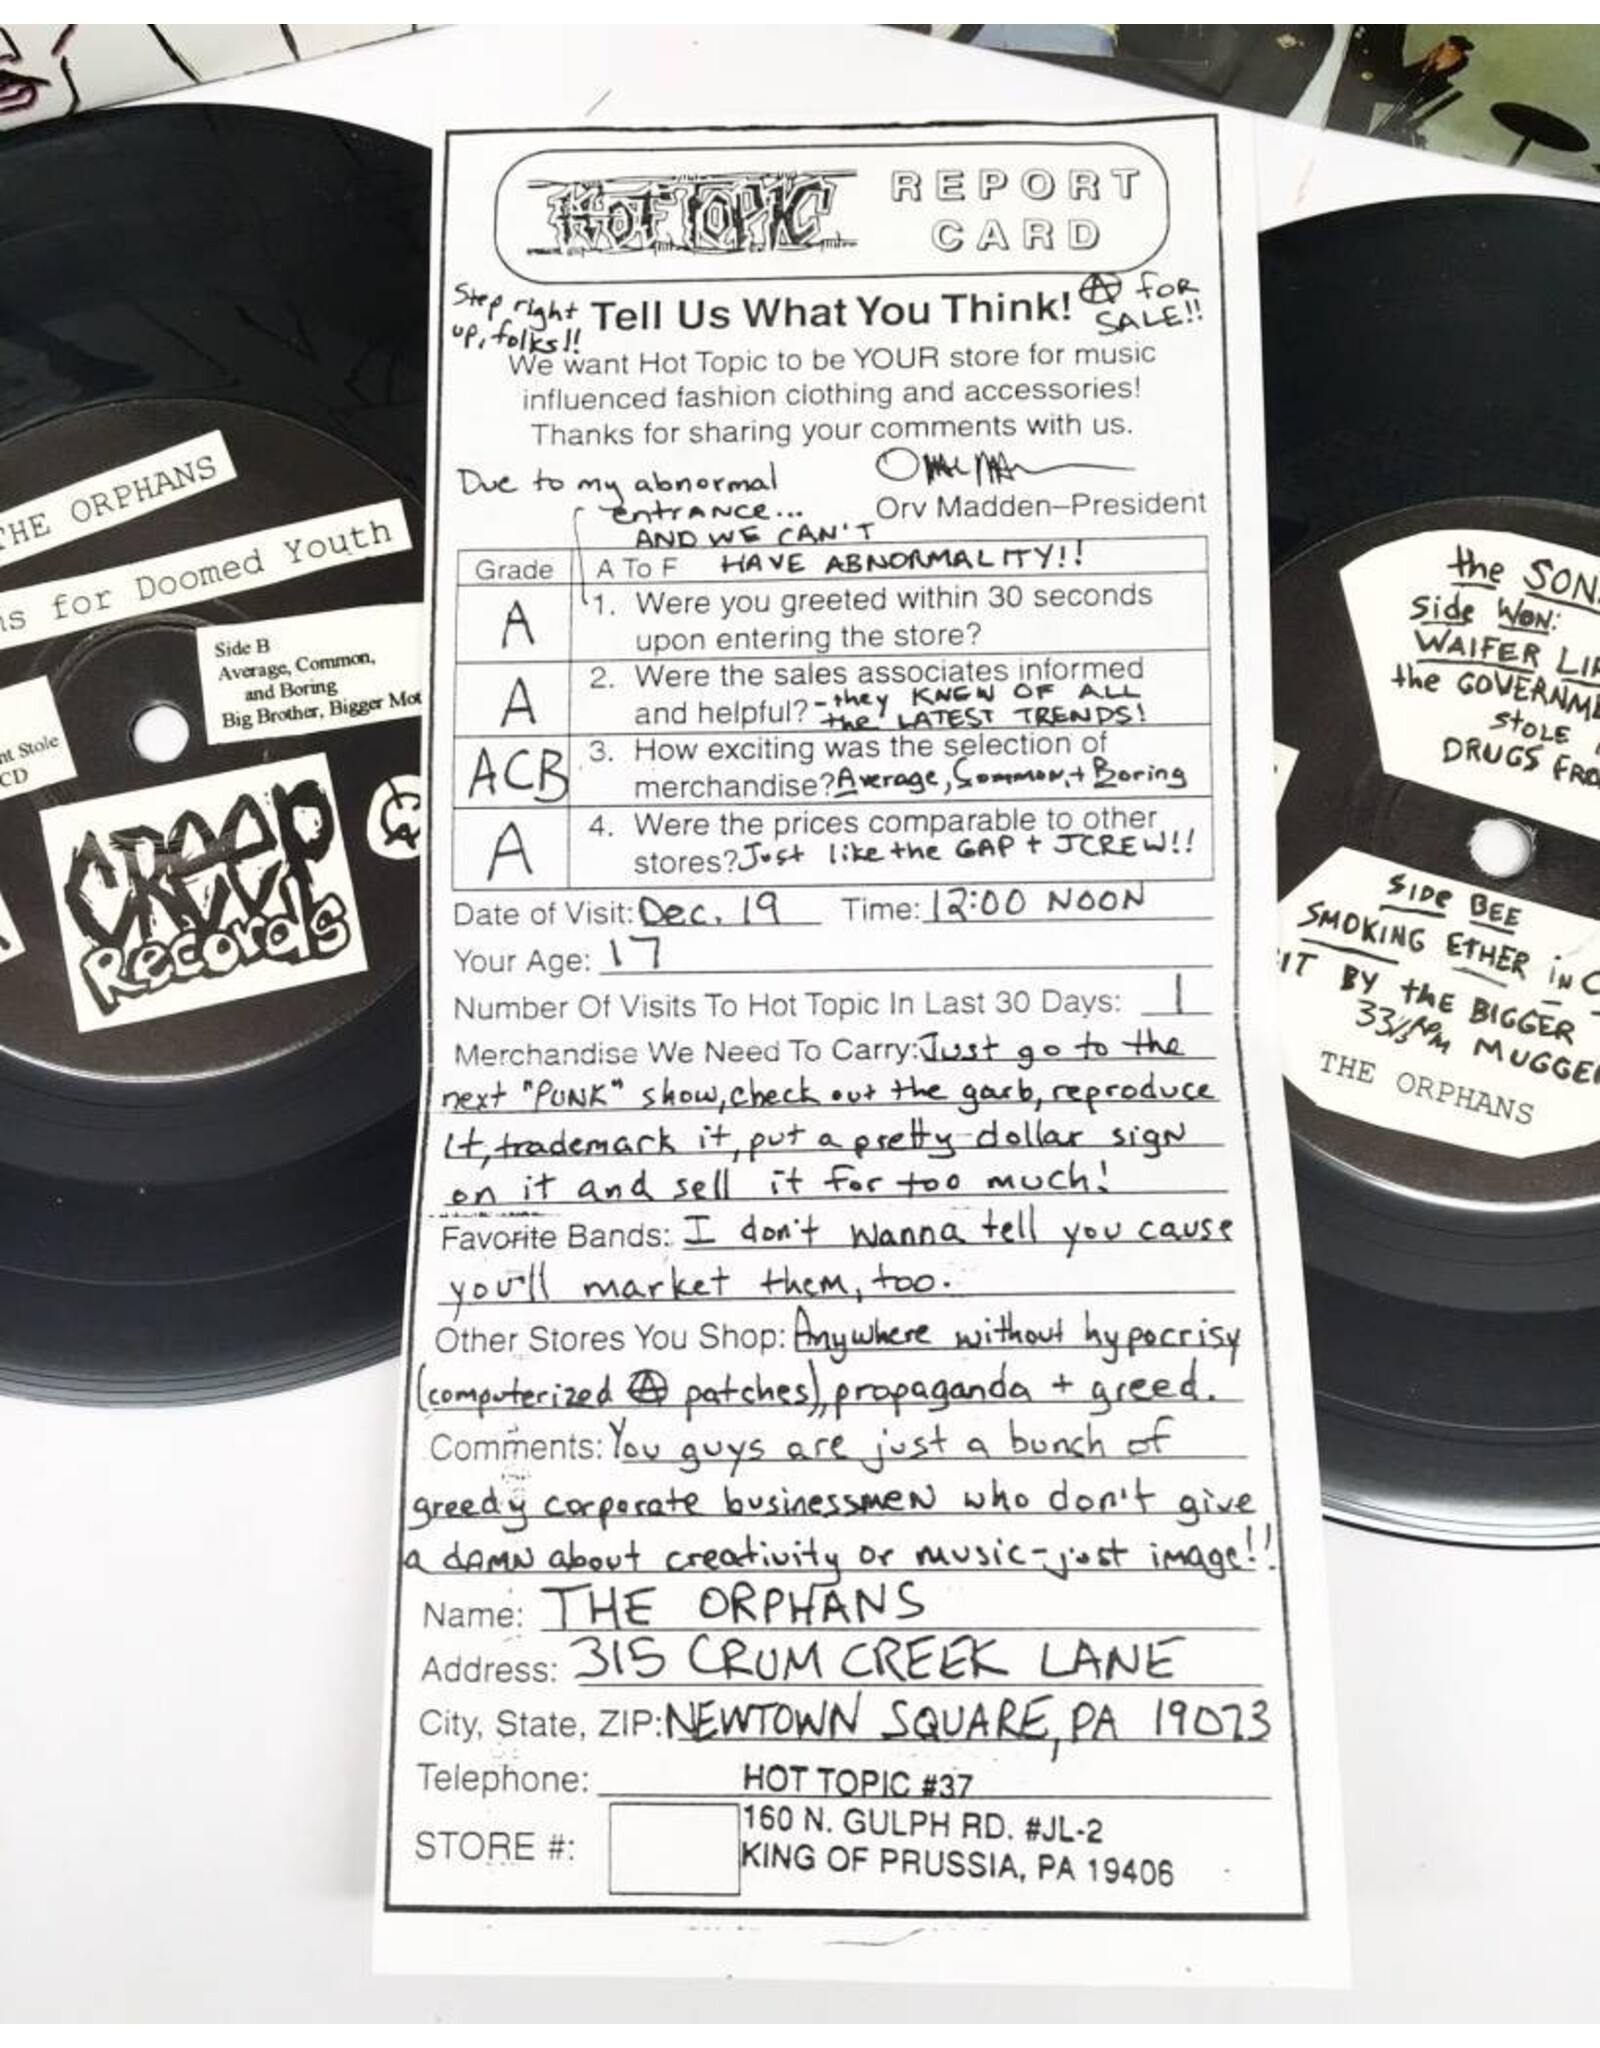 HOT TOPIC
REPORT
CARD
Step right
up, folks!!
Tell Us What You Think!
Ⓐ for
SALE!!
We want Hot Topic to be YOUR store for music
influenced fashion clothing and accessories!
Thanks for sharing your comments with us.
Due to my abnormal
entrance...
AND WE CAN'T
HAVE ABNORMALITY!!
Orv Madden–President
Grade A To F
A 1. Were you greeted within 30 seconds
upon entering the store?
A 2. Were the sales associates informed
and helpful? - they KNEW OF ALL
the LATEST TRENDS!
ACB 3. How exciting was the selection of
merchandise? Average, Common, + Boring
A 4. Were the prices comparable to other
stores? Just like the GAP + JCREW!!
Date of Visit: Dec. 19 Time: 12:00 NOON
Your Age: 17
Number Of Visits To Hot Topic In Last 30 Days: 1
Merchandise We Need To Carry: Just go to the
next "PUNK" show, check out the garb, reproduce
it, trademark it, put a pretty dollar sign
on it and sell it for too much!
Favorite Bands: I don't wanna tell you cause
you'll market them, too.
Other Stores You Shop: Anywhere without hypocrisy
(computerized Ⓐ patches), propaganda + greed.
Comments: You guys are just a bunch of
greedy corporate businessmen who don't give
a damn about creativity or music - just image!!
Name: THE ORPHANS
Address: 315 CRUM CREEK LANE
City, State, ZIP: NEWTOWN SQUARE, PA 19073
Telephone:
HOT TOPIC #37
160 N. GULPH RD. #JL-2
KING OF PRUSSIA, PA 19406
STORE #:
THE ORPHANS
for Doomed Youth
Side B
Average, Common,
and Boring
Big Brother, Bigger
Stole
CD
Creep
Records
the
Side Won:
WAIFER
the
stole
DRUGS
SIDE BEE
SMOKING ETHER in
BY the BIGGER
33⅓ rpm
THE ORPHANS